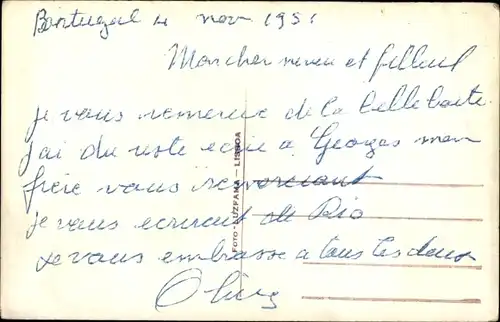 Portugal 4 nov 1951
Mon cher neveu et filleul
je vous remercie de la belle carte.
j'ai du reste écrit a Georges mon
frère vous remerciant
je vous ecrirai de Rio
je vous embrasse a tous les deux
FOTO - LUZFANA - LISBOA